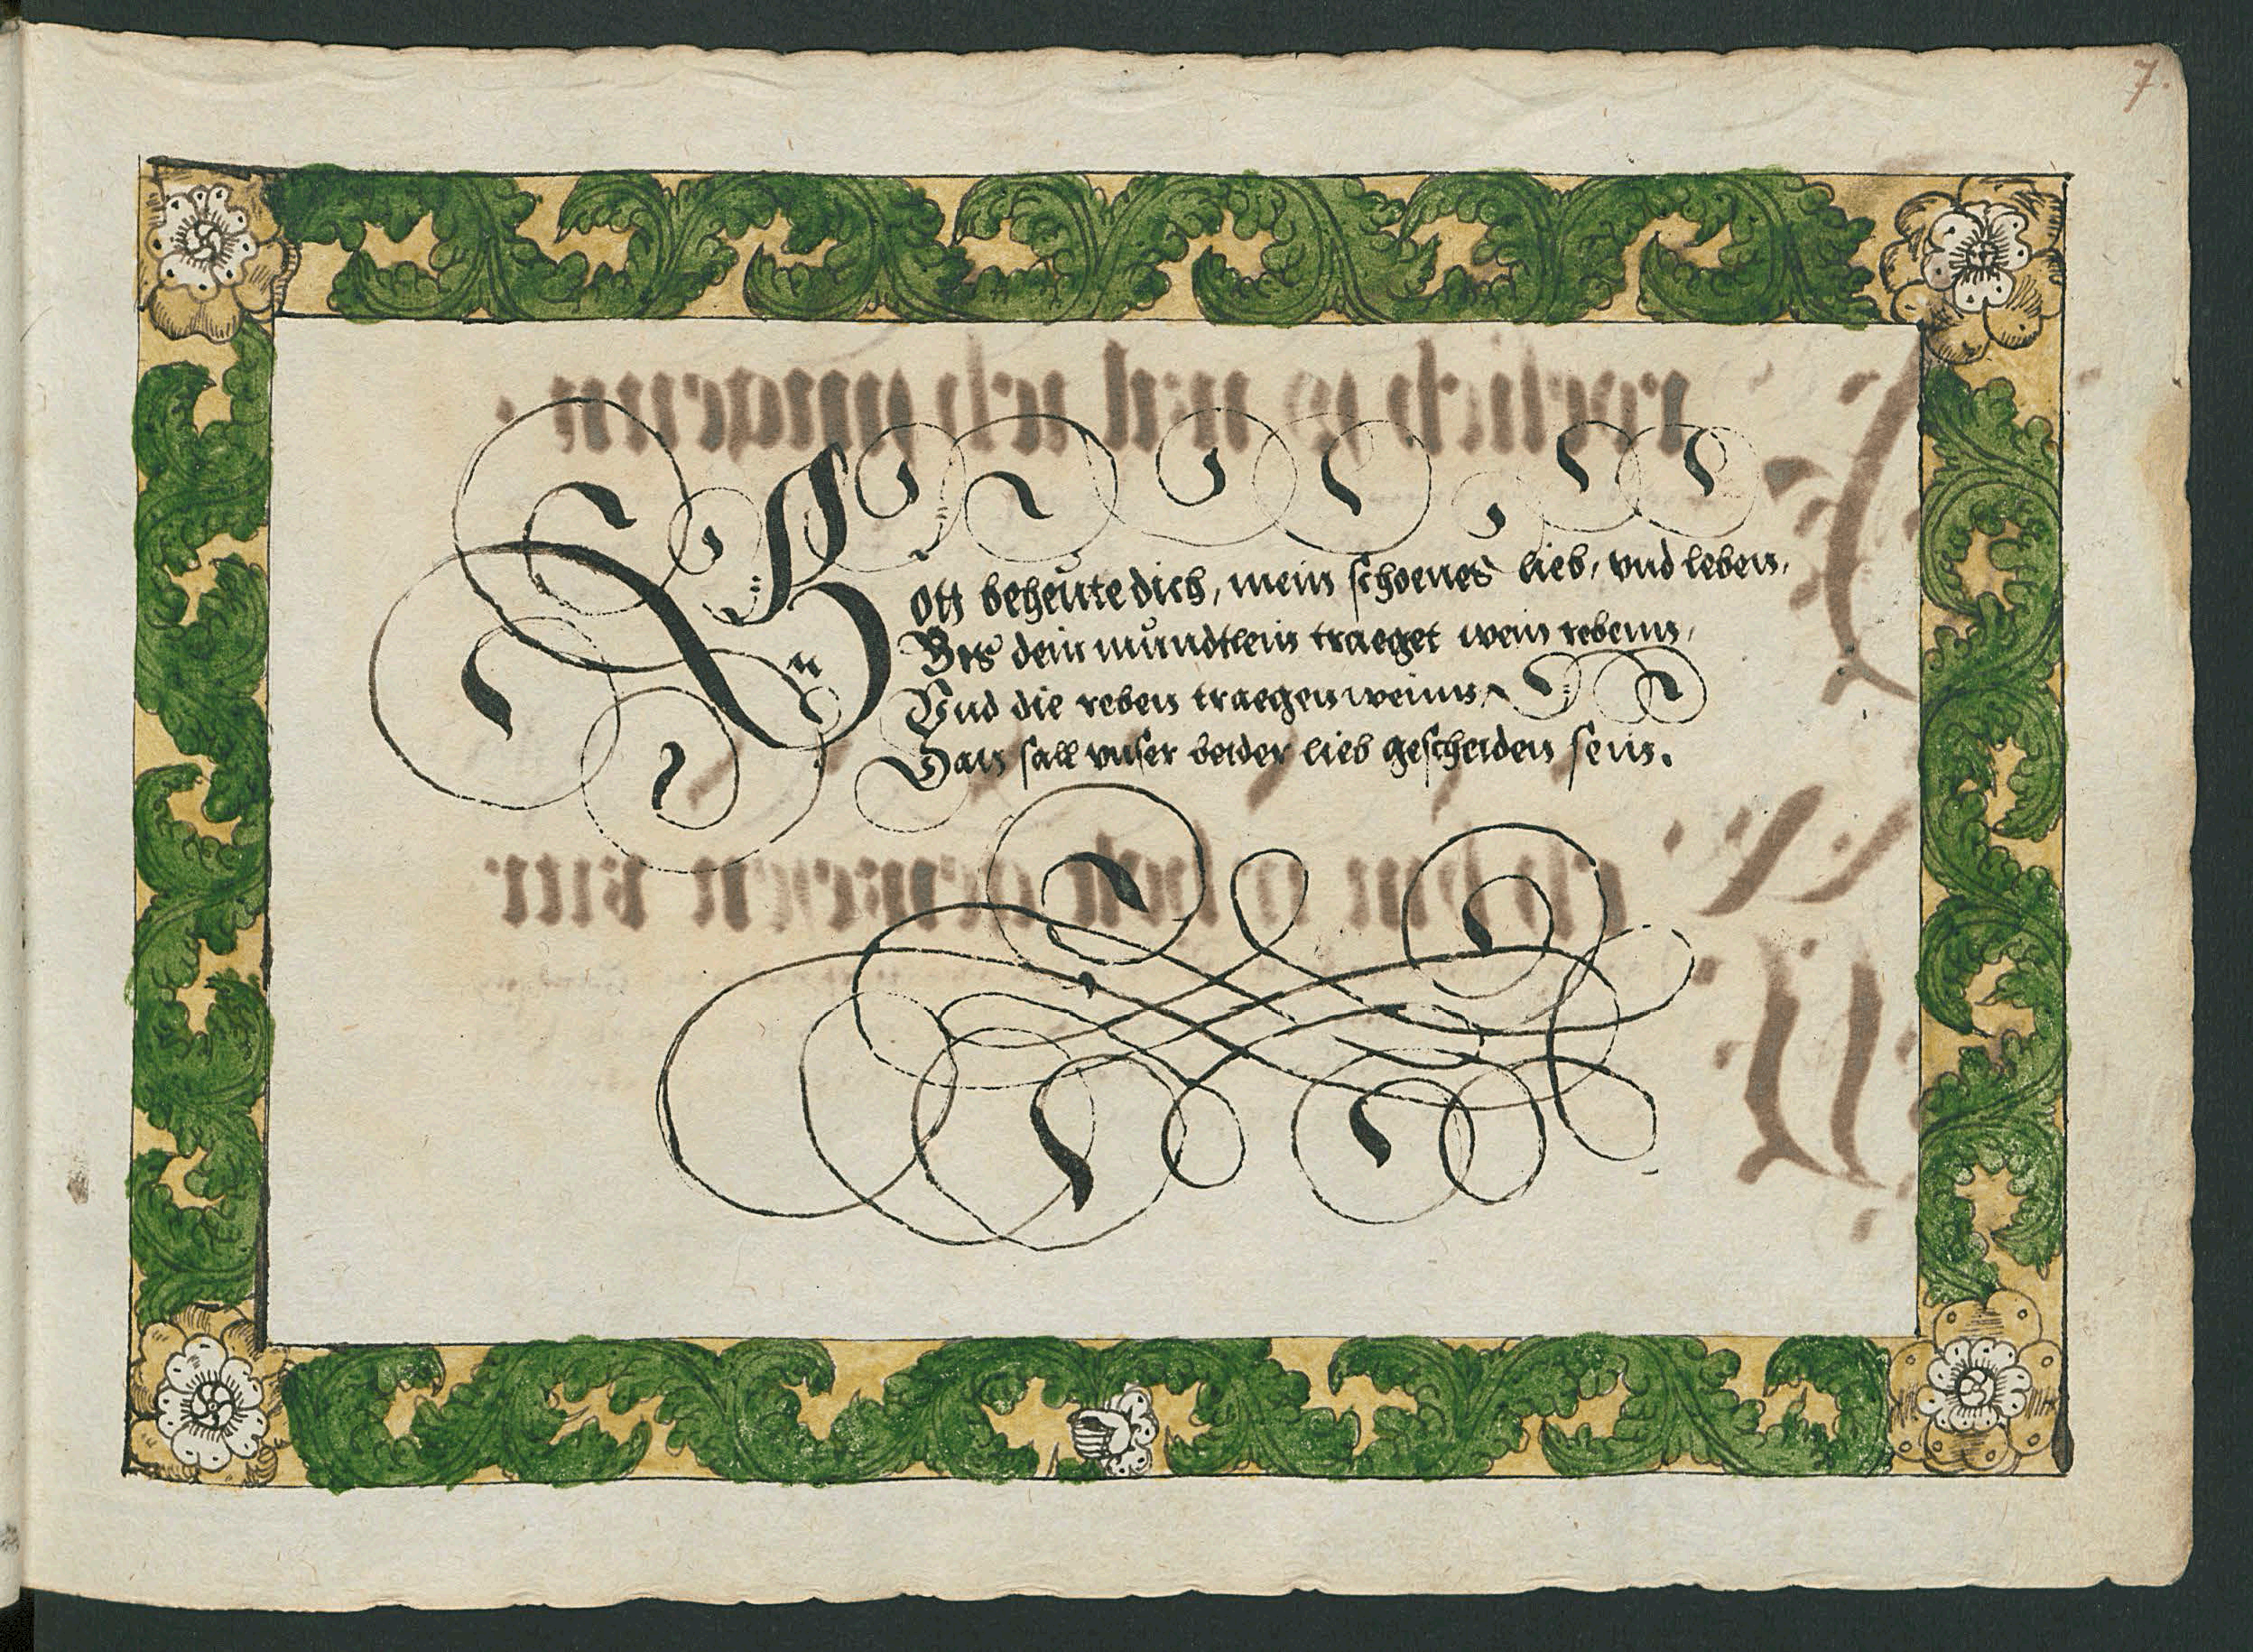 7.
Gott beheute dich, mein schoenes lieb, vnd leben,
Bis dein mundtlein traeget wein rebenn,
Vnd die reben traegen weinn
Dan sall vnser beider lieb gescheiden sein.